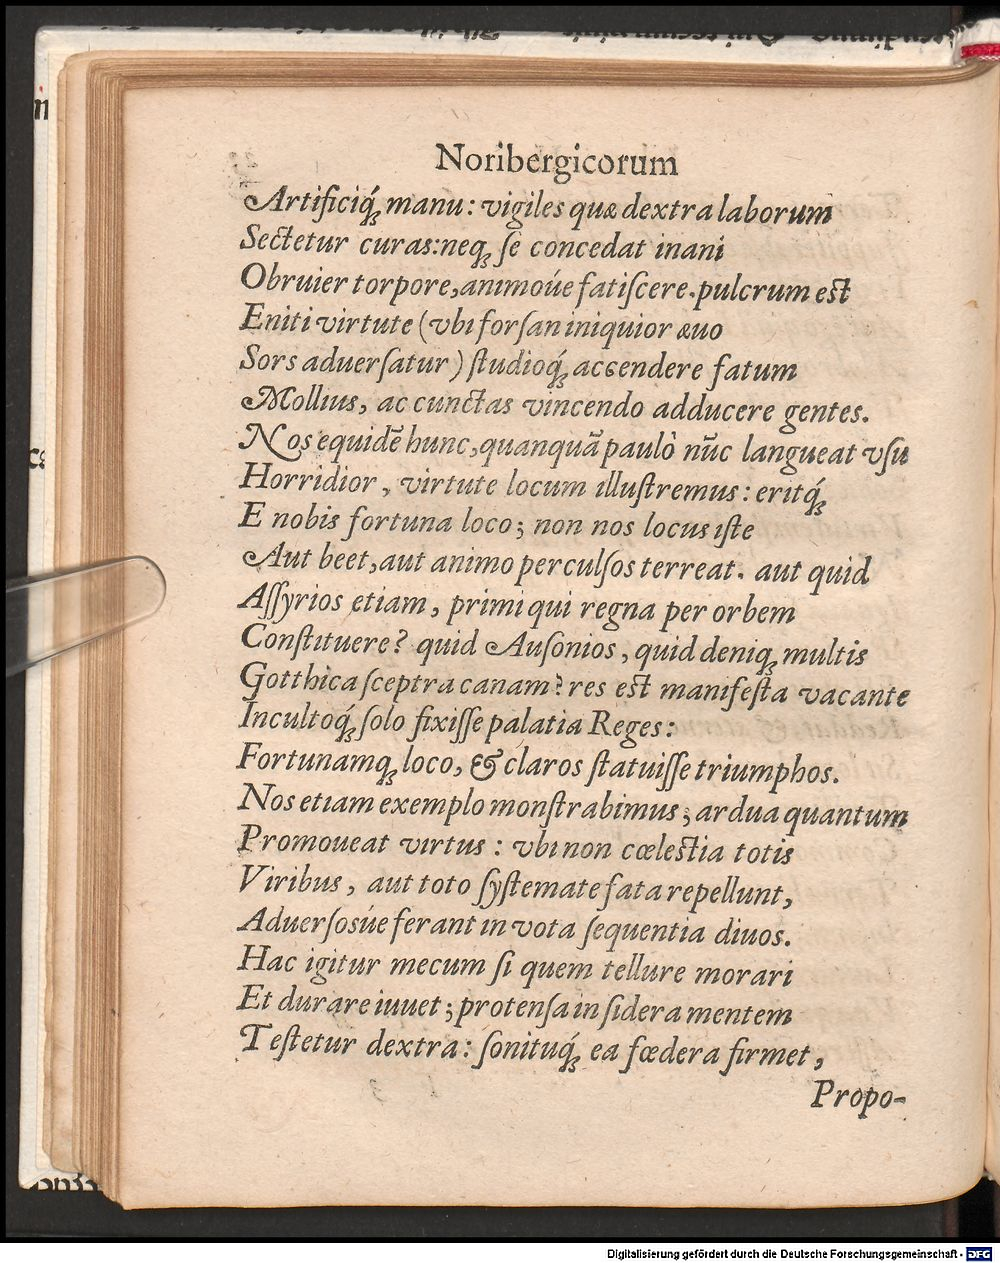 Noribergicorum
Artificiq́ꝫ manu: vigiles quæ dextra laborum
Sectetur curas: neqꝫ ſe concedat inani
Obruier torpore, animoúe fatiſcere. pulcrum eſt
Eniti virtute (vbi forſan iniquior æuo
Sors aduerſatur) ſtudioq́ꝫ accendere fatum
Mollius, ac cunctas vincendo adducere gentes.
Nos equidẽ hunc, quanquã paulò nũc langueat vſu
Horridior, virtute locum illuſtremus: eritq́ꝫ
E nobis fortuna loco; non nos locus iſte
Aut beet, aut animo perculſos terreat. aut quid
Aſſyrios etiam, primi qui regna per orbem
Conſtituere? quid Auſonios, quid deniqꝫ multis
Gotthica ſceptra canam? res eſt manifeſta vacante
Incultoq́ꝫ ſolo fixiſſe palatia Reges:
Fortunamqꝫ loco, & claros ſtatuiſſe triumphos.
Nos etiam exemplo monſtrabimus; ardua quantum
Promoueat virtus: vbi non cœleſtia totis
Viribus, aut toto ſyſtemate fata repellunt,
Aduerſosúe ferant in vota ſequentia diuos.
Hac igitur mecum ſi quem tellure morari
Et durare iuuet; protenſa in ſidera mentem
Teſtetur dextra: ſonituq́ꝫ ea fœdera firmet,
Propo-
Digitalisierung gefördert durch die Deutsche Forschungsgemeinschaft - DFG